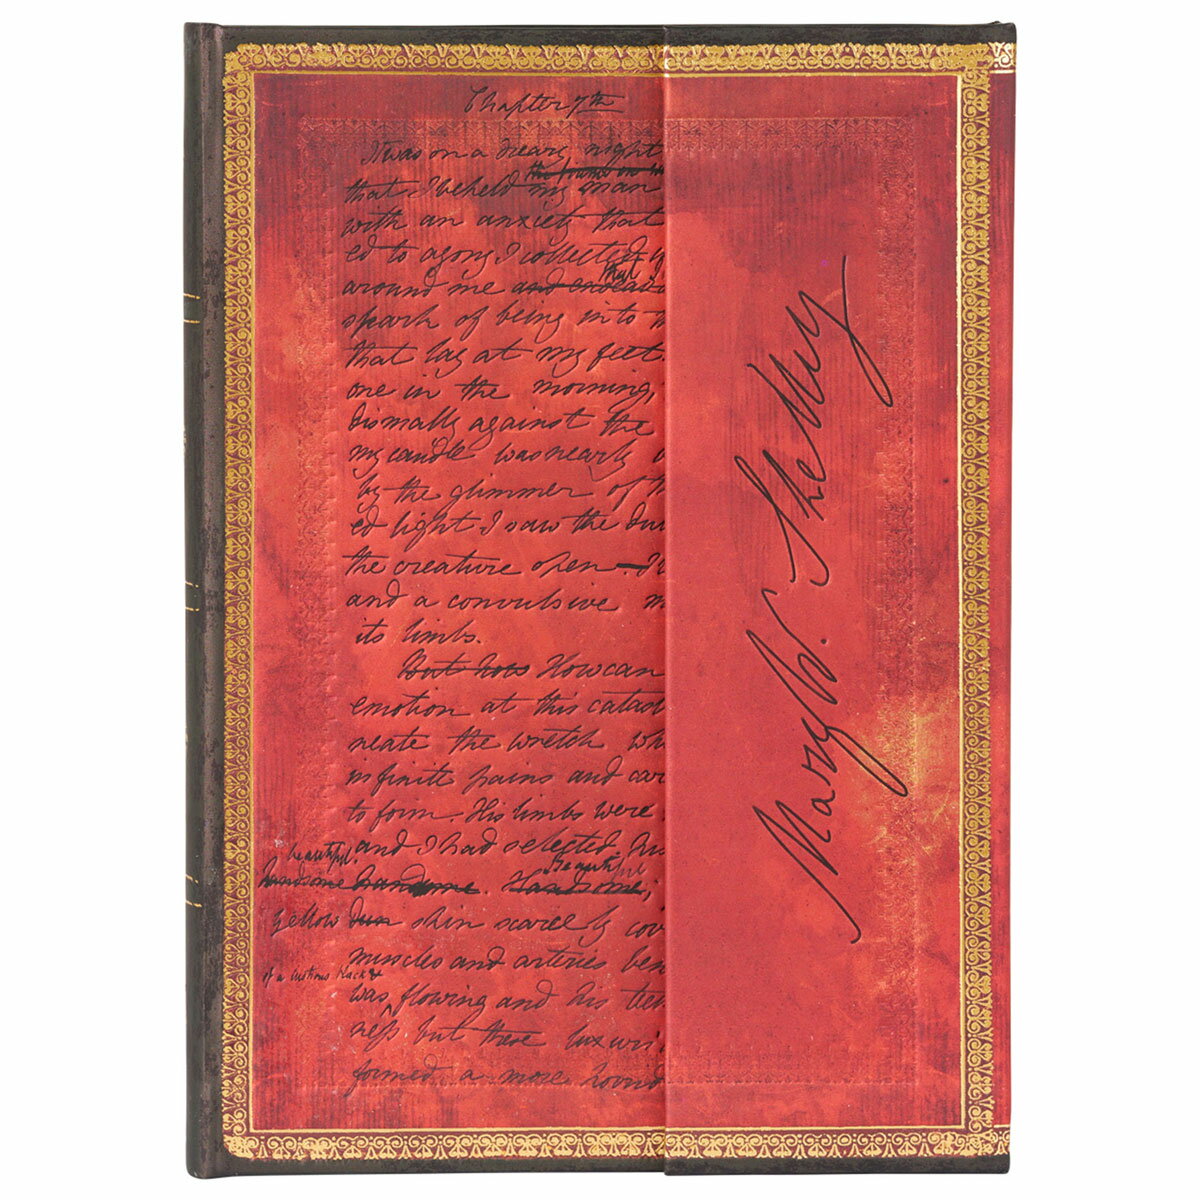 Chapter 7th
It was on a dreary night
that I beheld my man
with an anxiety that
ed to agony I collected
around me and endeavo that
spark of being into
that lay at my feet.
one in the morning,
dismally against the
my candle was nearly
by the glimmer of
ed light I saw the du
the creature open – I
and a convulsive m
its limbs.
But how How can
emotion at this catast
neate the wretch wh
infinite pains and car
to form. His limbs were
and I had selected his
beautiful. Beautiful
handsome handsome. Handsome,
yellow dun skin scarcely cov
muscles and arteries ben
of a lustrous black &
was flowing and his tee
ness but these luxuri
formed a more horrid
Mary W. Shelley